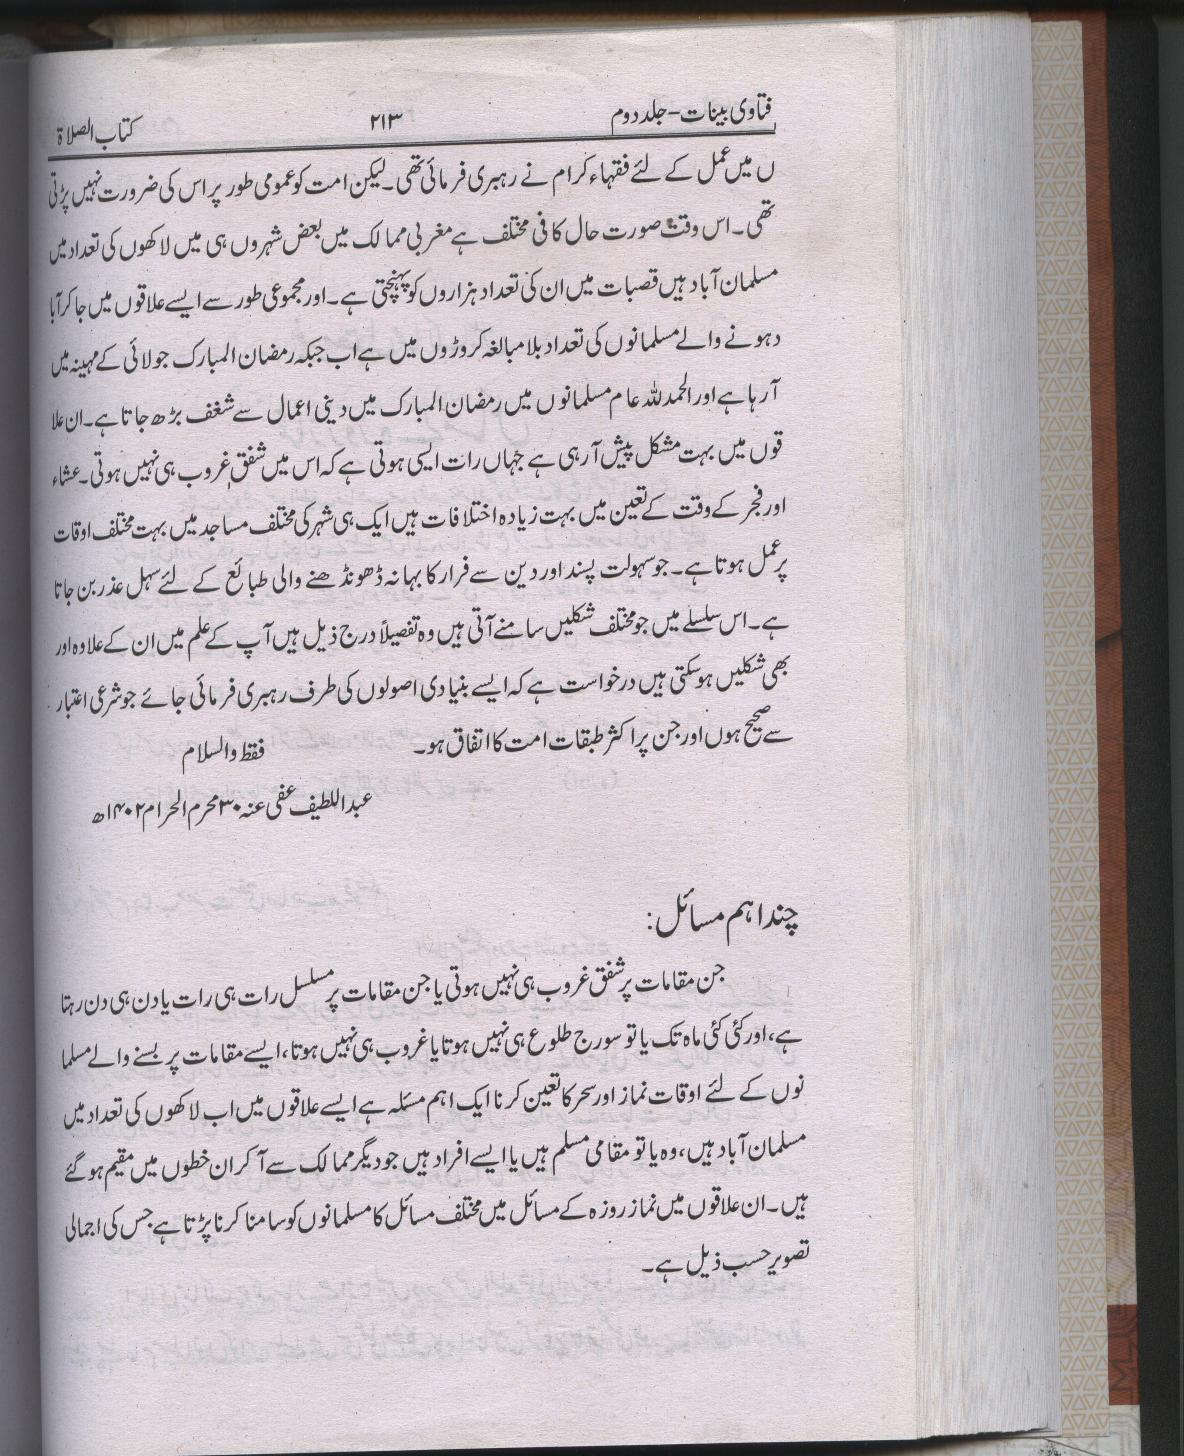 فتاویٰ بینات – جلد دوم ۲۱۳ کتاب الصلاۃ
ں میں عمل کے لئے فقہاء کرام نے رہبری فرمائی تھی۔ لیکن امت کو عمومی طور پر اس کی ضرورت نہیں پڑتی
تھی۔ اس وقت صورت حال کافی مختلف ہے مغربی ممالک میں بعض شہروں ہی میں لاکھوں کی تعداد میں
مسلمان آباد ہیں قصبات میں ان کی تعداد ہزاروں کو پہنچتی ہے۔ اور مجموعی طور سے ایسے علاقوں میں جا کر آبا
د ہونے والے مسلمانوں کی تعداد بلا مبالغہ کروڑوں میں ہے اب جبکہ رمضان المبارک جولائی کے مہینہ میں
آ رہا ہے اور الحمد للہ عام مسلمانوں میں رمضان المبارک میں دینی اعمال سے شغف بڑھ جاتا ہے۔ ان علا
قوں میں بہت مشکل پیش آ رہی ہے جہاں رات ایسی ہوتی ہے کہ اس میں شفق غروب ہی نہیں ہوتی۔ عشاء
اور فجر کے وقت کے تعین میں بہت زیادہ اختلافات ہیں ایک ہی شہر کی مختلف مساجد میں بہت مختلف اوقات
پر عمل ہوتا ہے۔ جو سہولت پسند اور دین سے فرار کا بہانہ ڈھونڈھنے والی طبائع کے لئے سہل عذر بن جاتا
ہے۔ اس سلسلے میں جو مختلف شکلیں سامنے آتی ہیں وہ تفصیلاً درج ذیل ہیں آپ کے علم میں ان کے علاوہ اور
بھی شکلیں ہو سکتی ہیں درخواست ہے کہ ایسے بنیادی اصولوں کی طرف رہبری فرمائی جائے جو شرعی اعتبار
سے صحیح ہوں اور جن پر اکثر طبقات امت کا اتفاق ہو۔ فقط والسلام
عبداللطیف عفی عنہ ۳۰ محرم الحرام ۱۴۰۲ھ
چند اہم مسائل:
جن مقامات پر شفق غروب ہی نہیں ہوتی یا جن مقامات پر مسلسل رات ہی رات یا دن ہی دن رہتا
ہے، اور کئی کئی ماہ تک یا تو سورج طلوع ہی نہیں ہوتا یا غروب ہی نہیں ہوتا، ایسے مقامات پر بسنے والے مسلما
نوں کے لئے اوقات نماز اور سحر کا تعین کرنا ایک اہم مسئلہ ہے ایسے علاقوں میں اب لاکھوں کی تعداد میں
مسلمان آباد ہیں، وہ یا تو مقامی مسلم ہیں یا ایسے افراد ہیں جو دیگر ممالک سے آ کر ان خطوں میں مقیم ہو گئے
ہیں۔ ان علاقوں میں نماز روزہ کے مسائل میں مختلف مسائل کا مسلمانوں کو سامنا کرنا پڑتا ہے جس کی اجمالی
تصویر حسب ذیل ہے۔